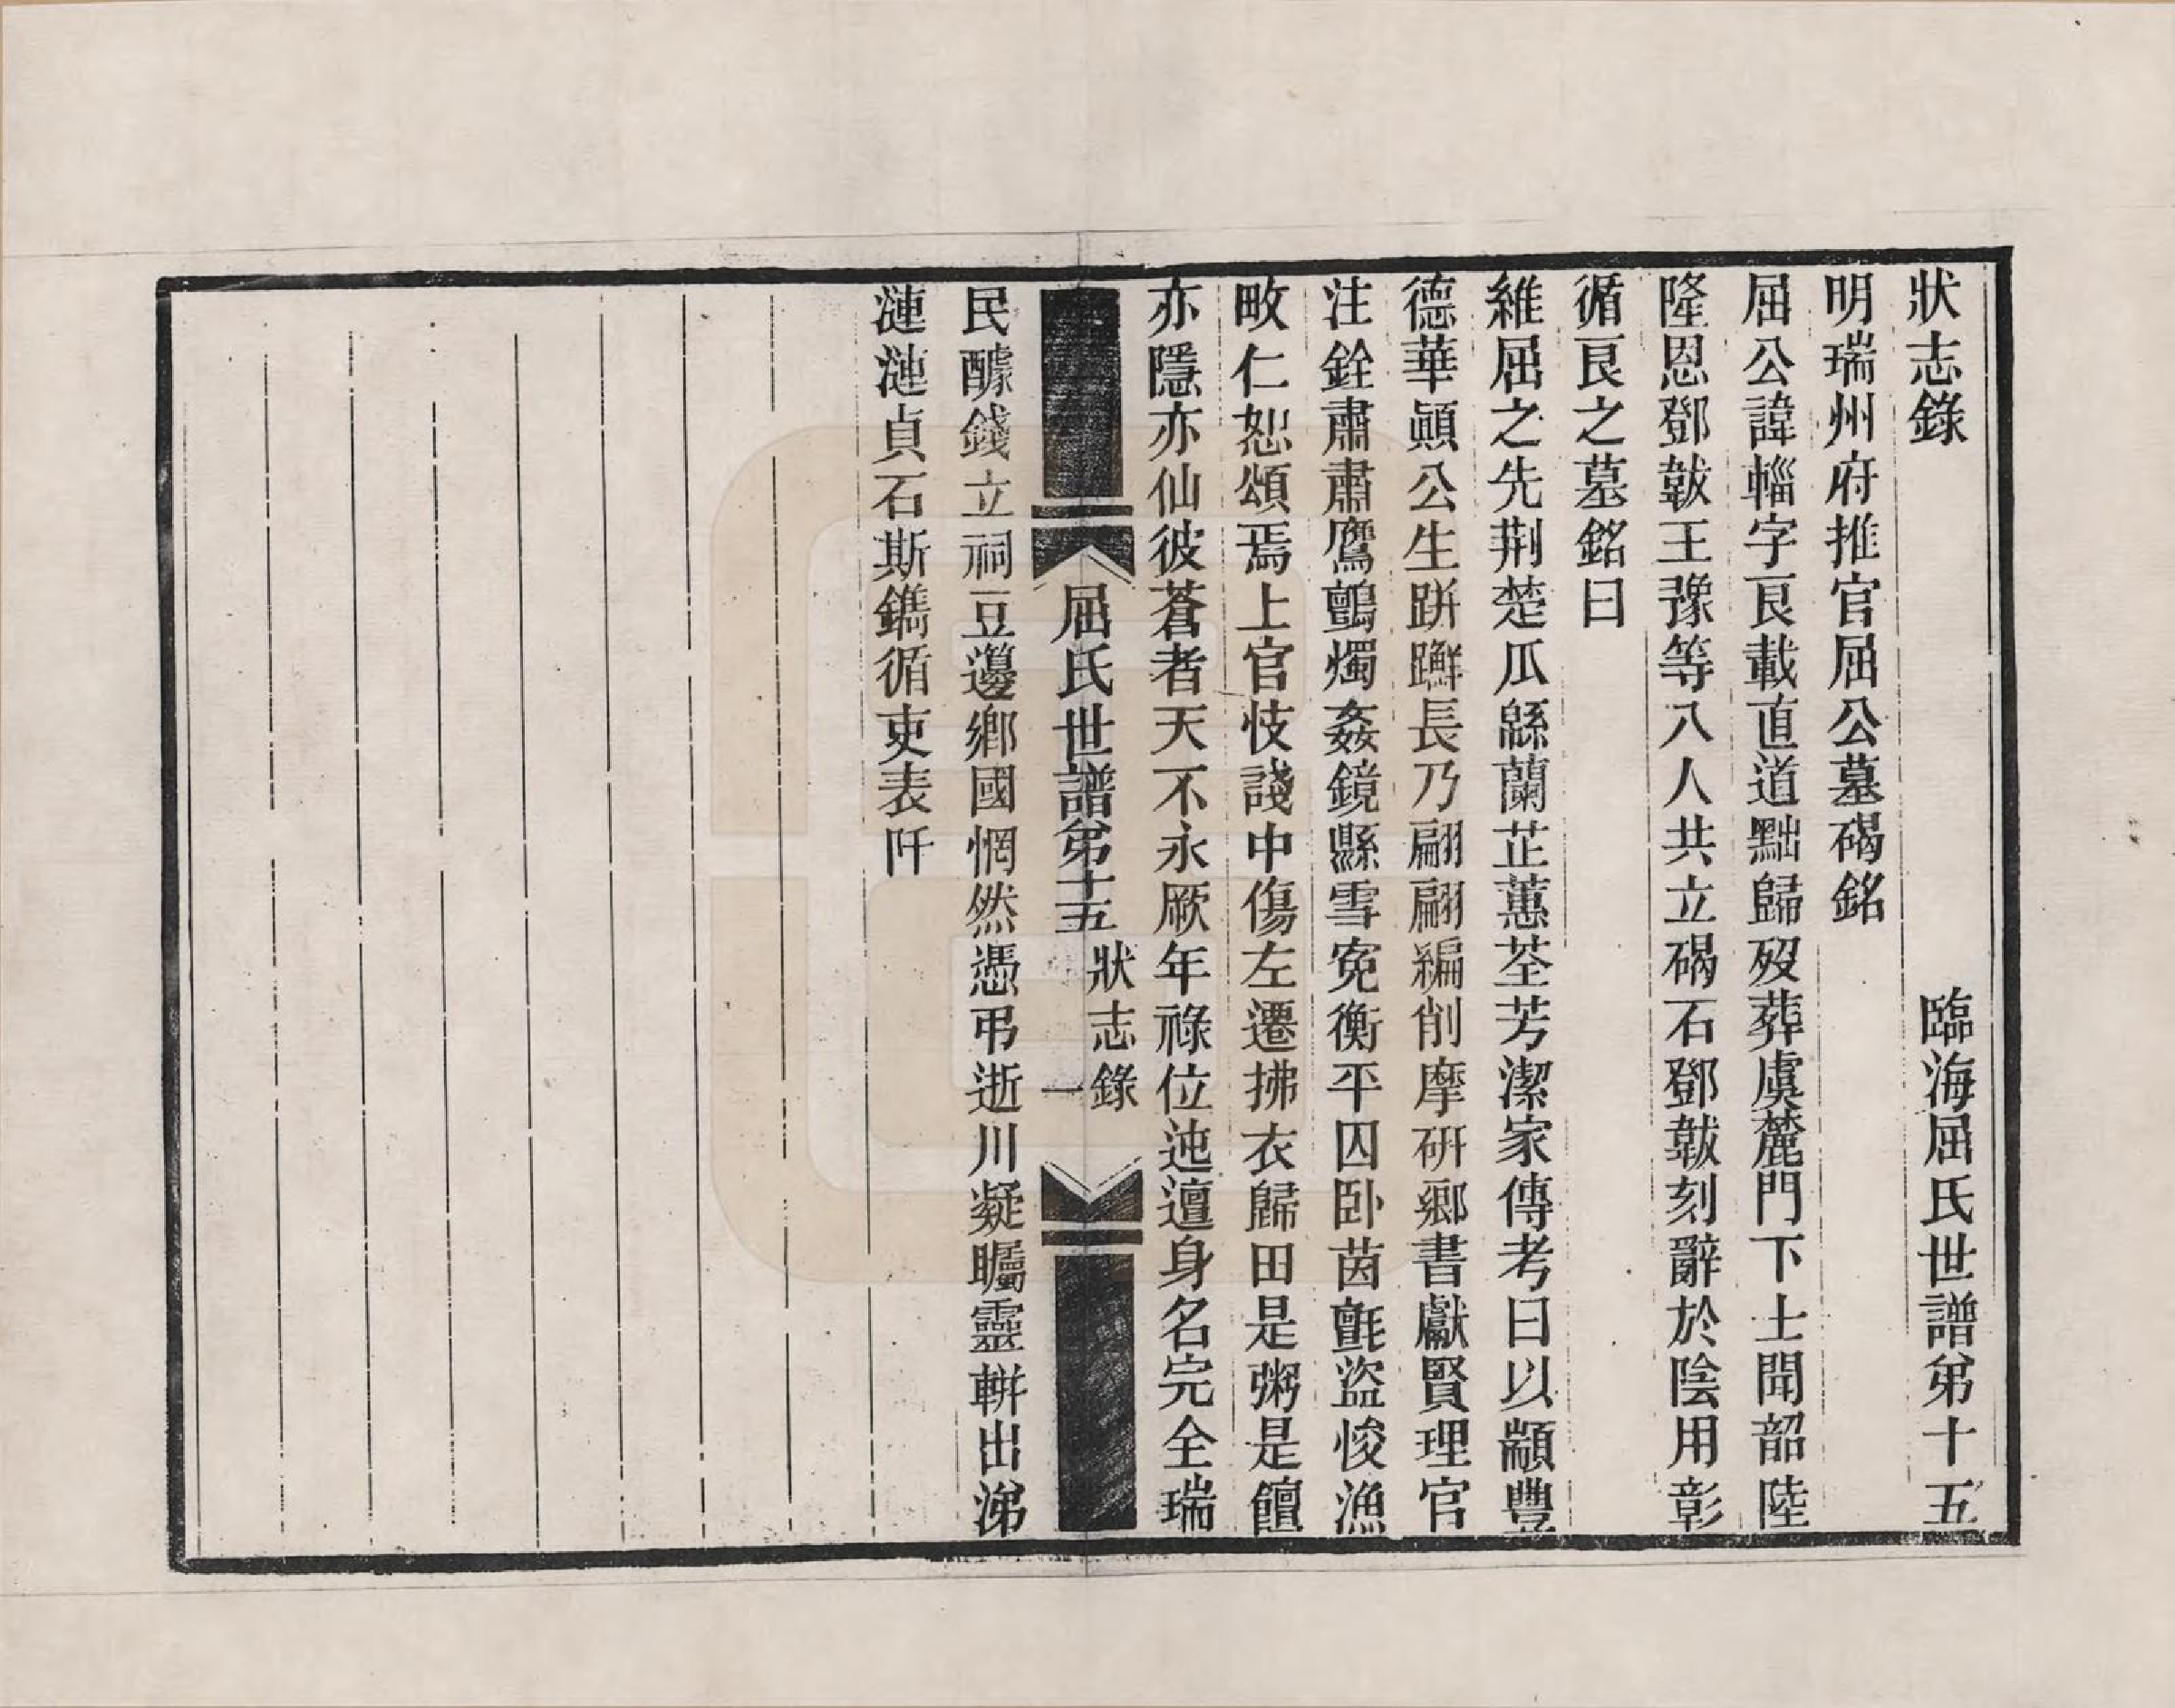 狀志錄　臨海屈氏世譜弟十五
明瑞州府推官屈公墓碣銘
屈公諱輜字良載直道黜歸歿葬虞麓門下士聞韶陸
隆恩鄧韍王豫等八人共立碣石鄧韍刻辭於陰用彰
循良之墓銘曰
維屈之先荆楚瓜緜蘭芷蕙荃芳潔家傳考曰以顓豐
德華顚公生跰躚長乃翩翩編削摩研鄉書獻賢理官
注銓肅肅鷹鸇燭姦鏡縣雪寃衡平囚卧茵氈盜悛漁
畋仁恕頌焉上官忮諓中傷左遷拂衣歸田是粥是饘
亦隱亦仙彼蒼者天不永厥年祿位迍邅身名完全瑞
屈氏世譜弟十五　狀志錄　一
民醵錢立祠豆籩鄉國惘然憑弔逝川凝矚靈輧出涕
漣漣貞石斯鐫循吏表阡